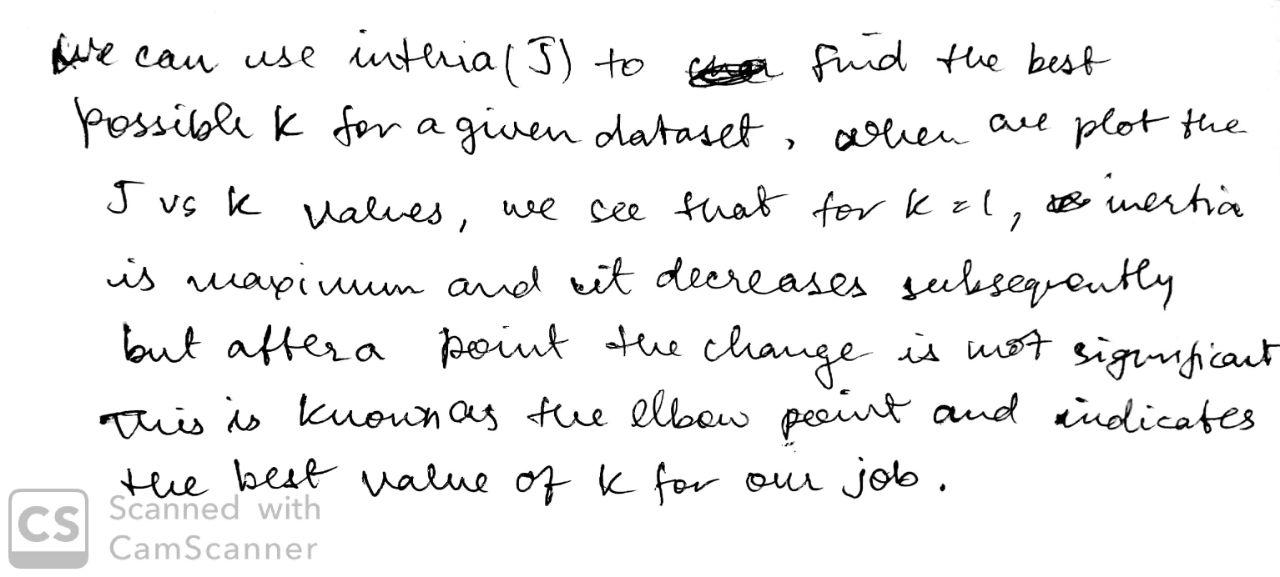 We can use interia (J) to find the best
possible k for a given dataset, when we plot the
J vs k values, we see that for k=1, inertia
is maximum and it decreases subsequently
but after a point the change is not significant
This is known as the elbow point and indicates
the best value of k for our job.
CS Scanned with
CamScanner